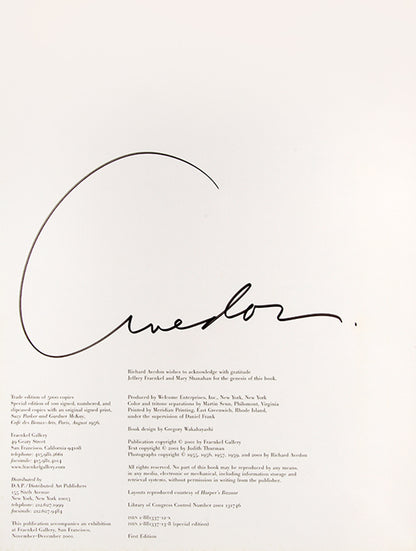 Avedon.
Richard Avedon wishes to acknowledge with gratitude
Jeffrey Fraenkel and Mary Shanahan for the genesis of this book.
Trade edition of 5000 copies
Special edition of 100 signed, numbered, and
slipcased copies with an original signed print,
Suzy Parker and Gardner McKay,
Café des Beaux-Arts, Paris, August 1956.
Fraenkel Gallery
49 Geary Street
San Francisco, California 94108
telephone: 415.981.2661
facsimile: 415.981.4014
www.fraenkelgallery.com
Distributed by
D.A.P. / Distributed Art Publishers
155 Sixth Avenue
New York, New York 10013
telephone: 212.627.1999
facsimile: 212.627.9484
This publication accompanies an exhibition
at Fraenkel Gallery, San Francisco,
November–December 2001.
Produced by Welcome Enterprises, Inc., New York, New York
Color and tritone separations by Martin Senn, Philomont, Virginia
Printed by Meridian Printing, East Greenwich, Rhode Island,
under the supervision of Daniel Frank
Book design by Gregory Wakabayashi
Publication copyright © 2001 by Fraenkel Gallery
Text copyright © 2001 by Judith Thurman
Photographs copyright © 1955, 1956, 1957, 1959, and 2001 by Richard Avedon
All rights reserved. No part of this book may be reproduced by any means,
in any media, electronic or mechanical, including information storage and
retrieval systems, without permission in writing from the publisher.
Layouts reproduced courtesy of Harper's Bazaar
Library of Congress Control Number 2001 131746
ISBN 1-881337-12-x
ISBN 1-881337-13-8 (special edition)
First Edition